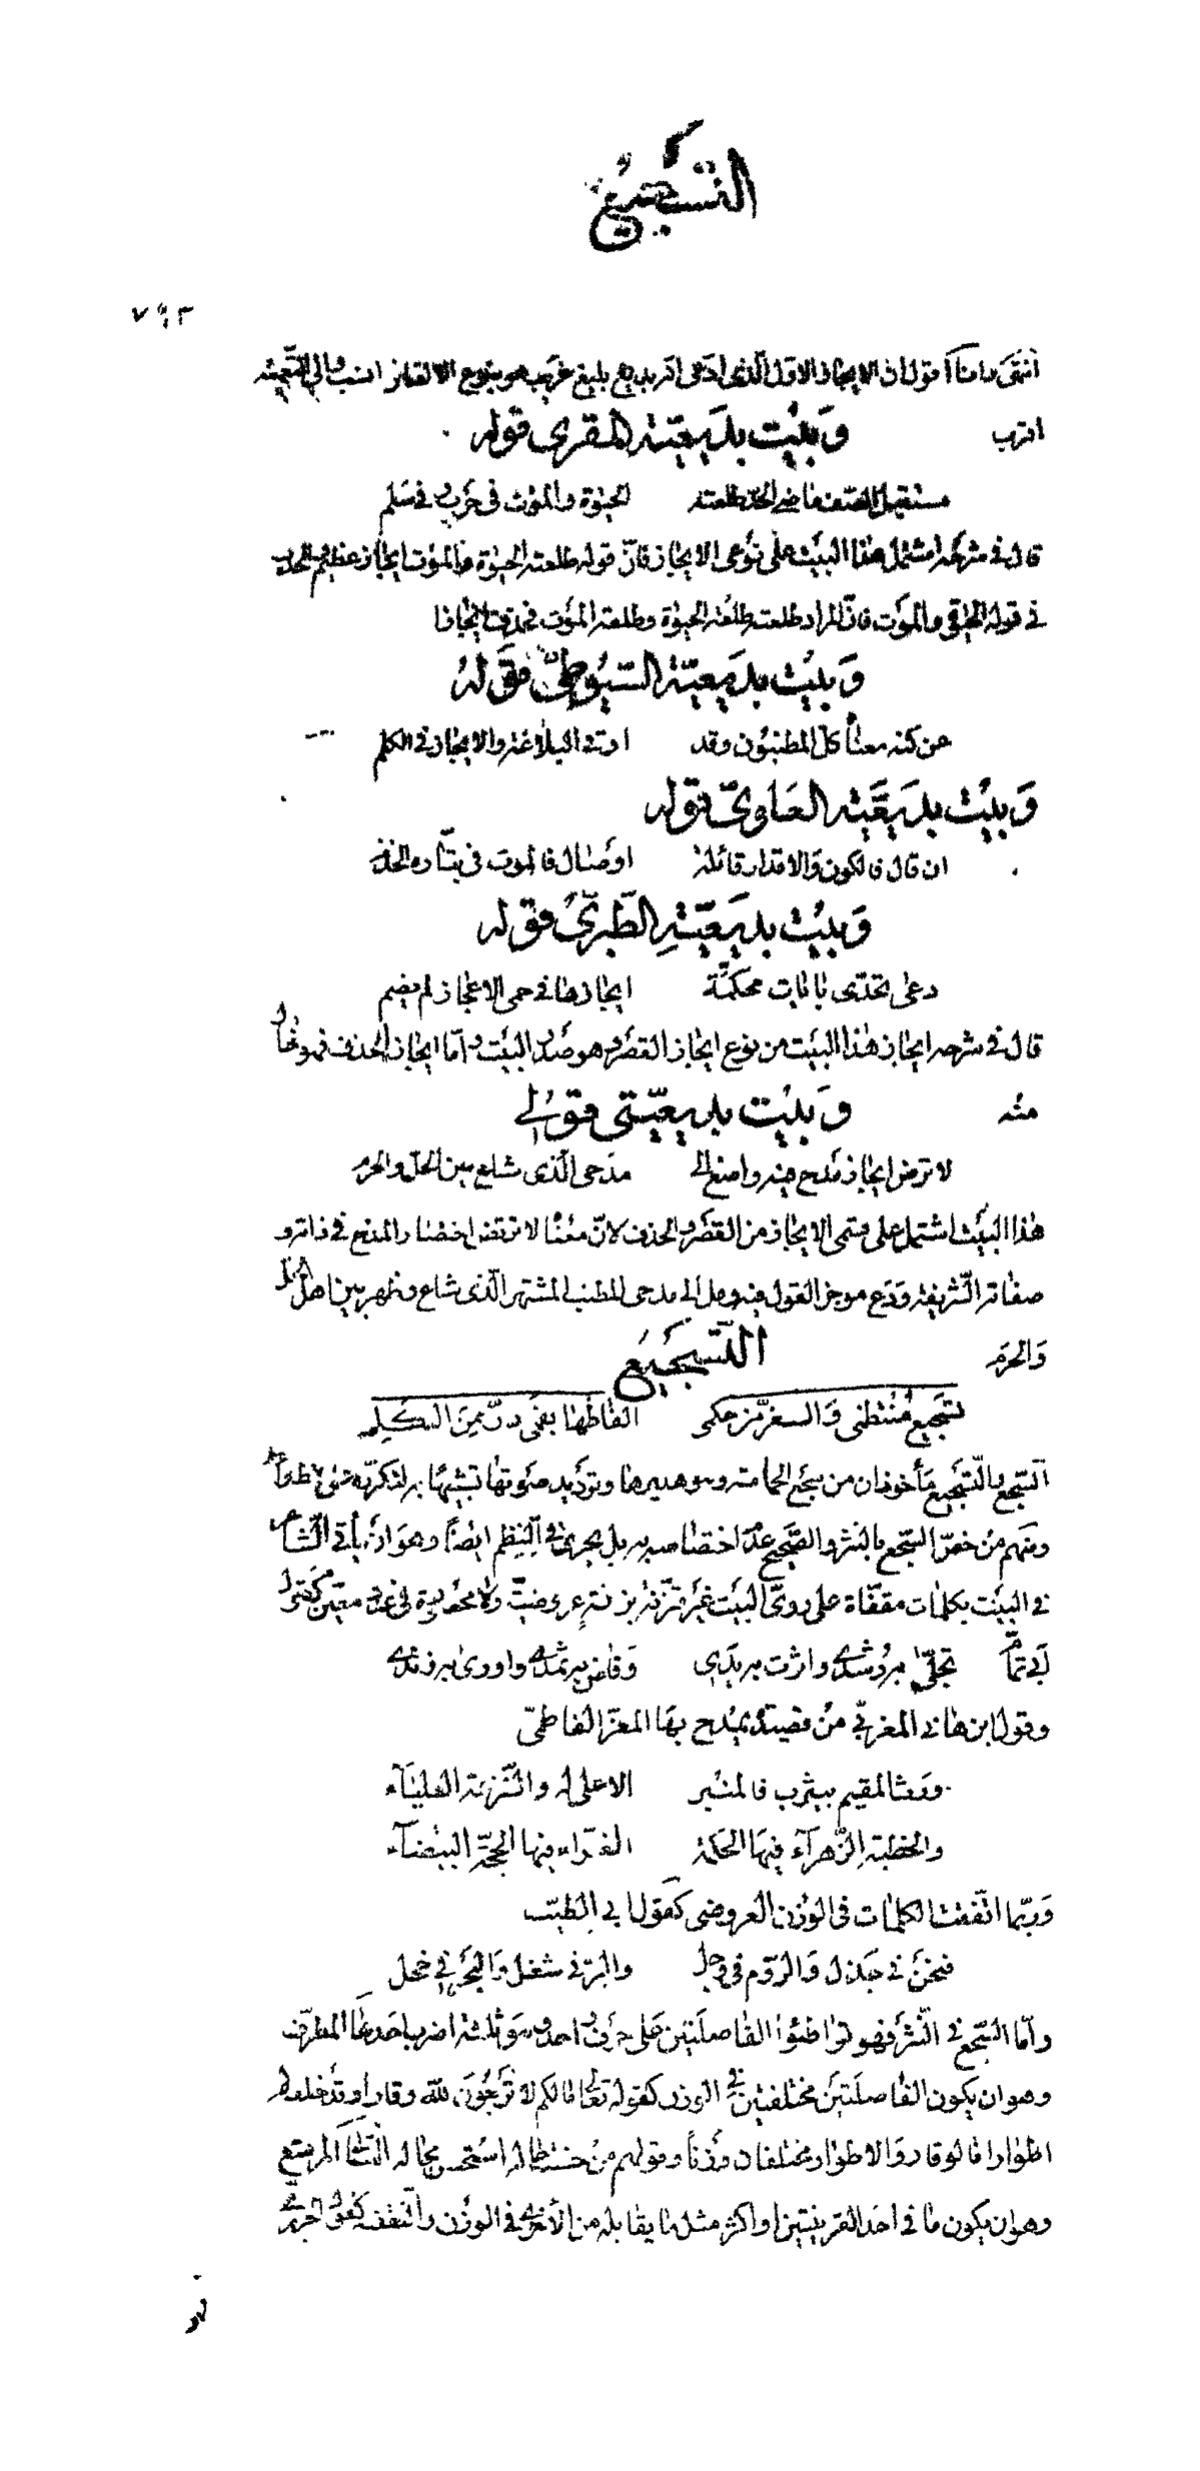 التسجيع
٧٩٣
انتهى وانا اقول ان الايجاز الاول الذى ادعى انه بديع بليغ غريب هو بنوع الالغاز انسب والى التعمية
اقرب وَبَيْت بديعيّته المقرى قوله
مستقبل طلعته الحيوة والموت فى حرب وفى سلم
قال فى شرحه اشتمل هذا البيت على نوعى الايجاز فانّ قوله طلعته الحيوة والموت ايجاز عظيم والحذف
فى قوله الحيوة والموت فانّ المراد طلعته طلعة الحيوة وطلعة الموت فحذف ايجازا
وَبيْت بديعيّة السّيوطىّ قوله
عن كنه معناه كلّ المطنبون وقد اوتى البلاغة والايجاز فى الكلم
وَبيْت بديعيّة العلوىّ قوله
ان قال فالكون والاقدار قائلة اوصال فالموت فى
وَبيْت بديعيّة الطّبرىّ قوله
دعى تحدّى بايات محكمة ايجازها فى حمى الاعجاز لم يضم
قال فى شرحه ايجاز هذا البيت من نوع ايجاز القصر وهو صدر البيت وامّا ايجاز الحذف فهو خال
منه وَبيْت بديعيّتى قولى
لا ترض ايجاز مدح فيه واصغ الى مدحى الّذى شاع بين الحلّ والحرم
هذا البيت اشتمل على قسمى الايجاز من القصر والحذف لانّ معناه لا ترتض اختصار المدح فى ذاته و
صفاته الشّريفة ودع موجز القول فيه ومل الى مدحى المطنب المشتهر الّذى شاع وظهر بين اهل الحلّ
والحرم التّسجيع
تسجيع منتظمى والسعز من حكمى الفاظها بفمى درّ من الكلم
السّجع والتّسجيع مأخوذان من سجع الحمامة وهو هديرها وترديد صوتها تشبيها به لتكرّره على نمط واحد
ومنهم من خصّ السّجع بالنثر والصّحيح عدم اختصاصه به بل يجرى فى النّظم ايضا وهو ان يأتى الشّاعر
فى البيت بكلمات مقفّاة على روىّ البيت غير متّزنة بزنة عروضيّة ولا محصورة فى عدد معيّن كقول
ابى تمّام تجلّى به رشدى واثرت به يدى وفاض به ثمدى واورى به زندى
وقول ابن هانى المغربى من قصيدة يمدح بها المعزّ الفاطمىّ
وورثا المقيم بيثرب فالمنبر الاعلى له والترعة العلياء
والخطبة الزّهراء فيها الحكمة الغرّاء فيها الحجّة البيضاء
وربّما اتّفقت الكلمات فى الوزن العروضى كقول ابى الطيّب
فنحن فى جذل والرّوم فى وجل والبرّ فى شغل والبحر فى خجل
وامّا السّجع فى النّثر فهو تواطئوا الفاصلتين على حرف واحد وهو ثلاثة اضرب احدها المطرّف
وهو ان يكون الفاصلتين مختلفتين فى الوزن كقوله تعالى مالكم لا ترجون للّه وقارا وقد خلقكم
اطوارا فالوقار والاطوار مختلفان وزنا وقولهم من حسنت حاله استحسن محاله الثانى المرصّع
وهو ان يكون ما فى احد القرينتين او اكثر مثل ما يقابله من الاخرى فى الوزن والتقفية كقول الحريرى